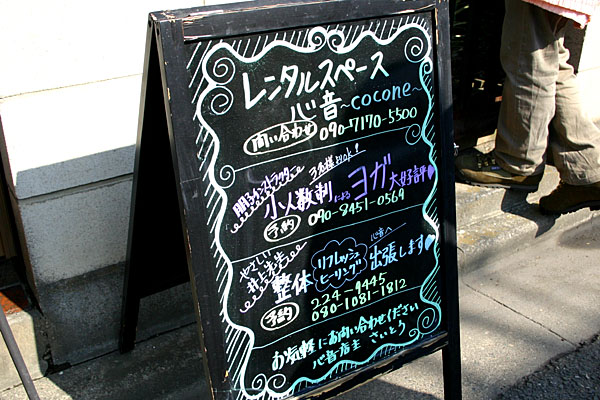 レンタルスペース
心音~cocone~
問い合わせ 090-7170-5500
明るいインストラクター 3名様よりok!
小人数制による ヨガ 大好評♥
予約 090-8451-0569
やさしい井上先生 心音へ
整体 リフレッシュヒーリング 出張します♥
予約 224-9445
080-1081-1812
お気軽にお問い合わせください
心音店主 さいとう